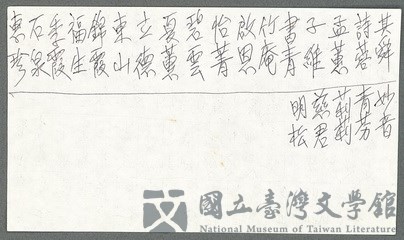 其舜
詩蓉
孟蕙
子維
書青
竹庵
啟恩
怡菁
碧雲
夏薰
立德
東山
錦霞
福生
季霞
石泉
惠珍
妙音
青芳
莉莉
慈君
明松
國立臺灣文學館
National Museum of Taiwan Literature